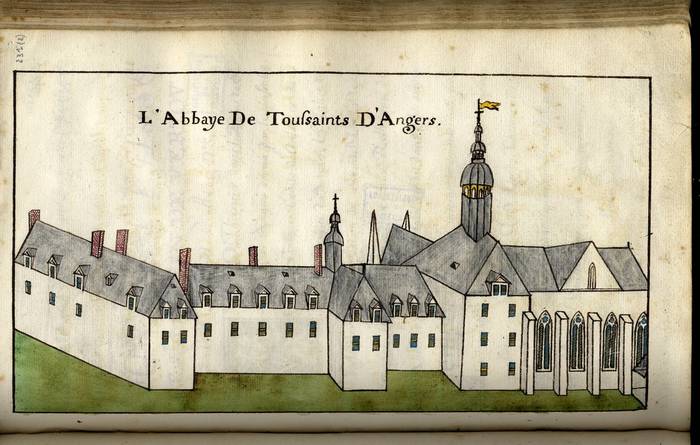 L'Abbaye De Touſsaints D'Angers.